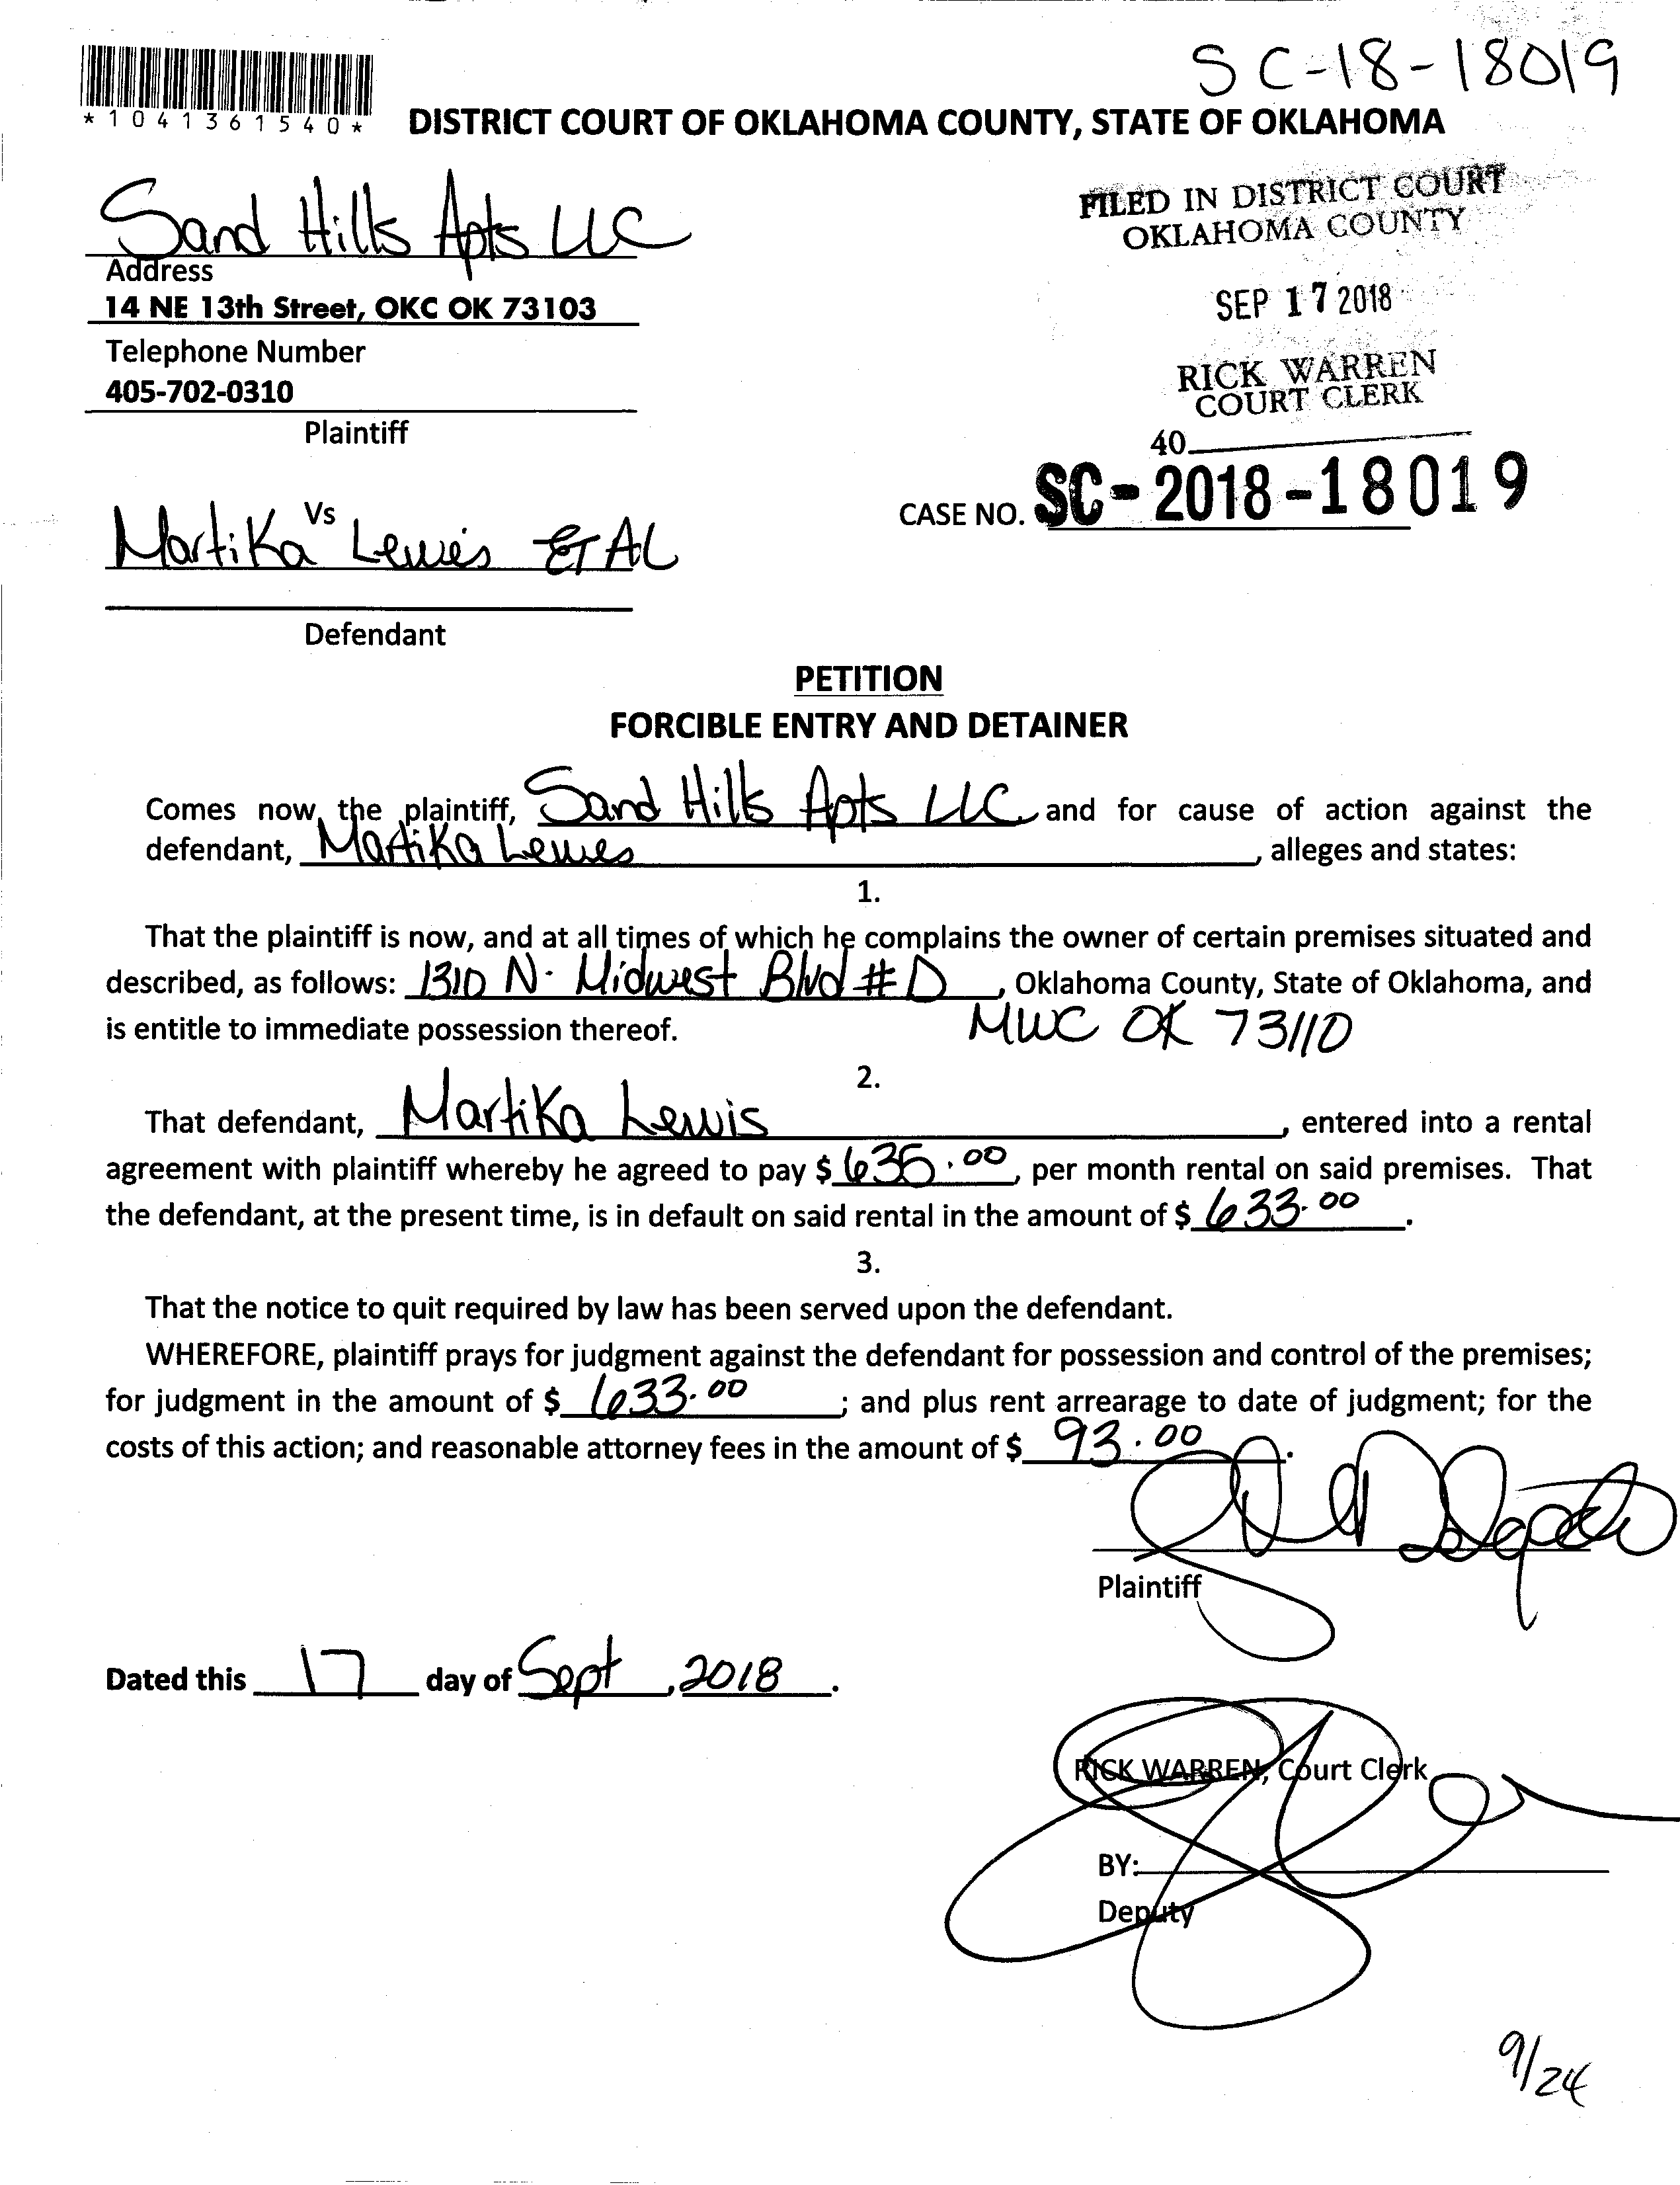 SC-18-18019
*1041361540*
DISTRICT COURT OF OKLAHOMA COUNTY, STATE OF OKLAHOMA
Sand Hills Apts LLC
Address
14 NE 13th Street, OKC OK 73103
Telephone Number
405-702-0310
Plaintiff
FILED IN DISTRICT COURT
OKLAHOMA COUNTY
SEP 17 2018
RICK WARREN
COURT CLERK
40
CASE NO. SC-2018-18019
Vs
Martika Lewis ET AL
Defendant
PETITION
FORCIBLE ENTRY AND DETAINER
Comes now, the plaintiff, Sand Hills Apts LLC and for cause of action against the
defendant, Martika Lewis, alleges and states:
1.
That the plaintiff is now, and at all times of which he complains the owner of certain premises situated and
described, as follows: 1310 N. Midwest Blvd #D, Oklahoma County, State of Oklahoma, and
is entitle to immediate possession thereof. MWC OK 73110
2.
That defendant, Martika Lewis, entered into a rental
agreement with plaintiff whereby he agreed to pay $ 635.00, per month rental on said premises. That
the defendant, at the present time, is in default on said rental in the amount of $ 633.00.
3.
That the notice to quit required by law has been served upon the defendant.
WHEREFORE, plaintiff prays for judgment against the defendant for possession and control of the premises;
for judgment in the amount of $ 633.00; and plus rent arrearage to date of judgment; for the
costs of this action; and reasonable attorney fees in the amount of $ 93.00.
Plaintiff
Dated this 17 day of Sept, 2018.
RICK WARREN, Court Clerk
BY:
Deputy
9/24